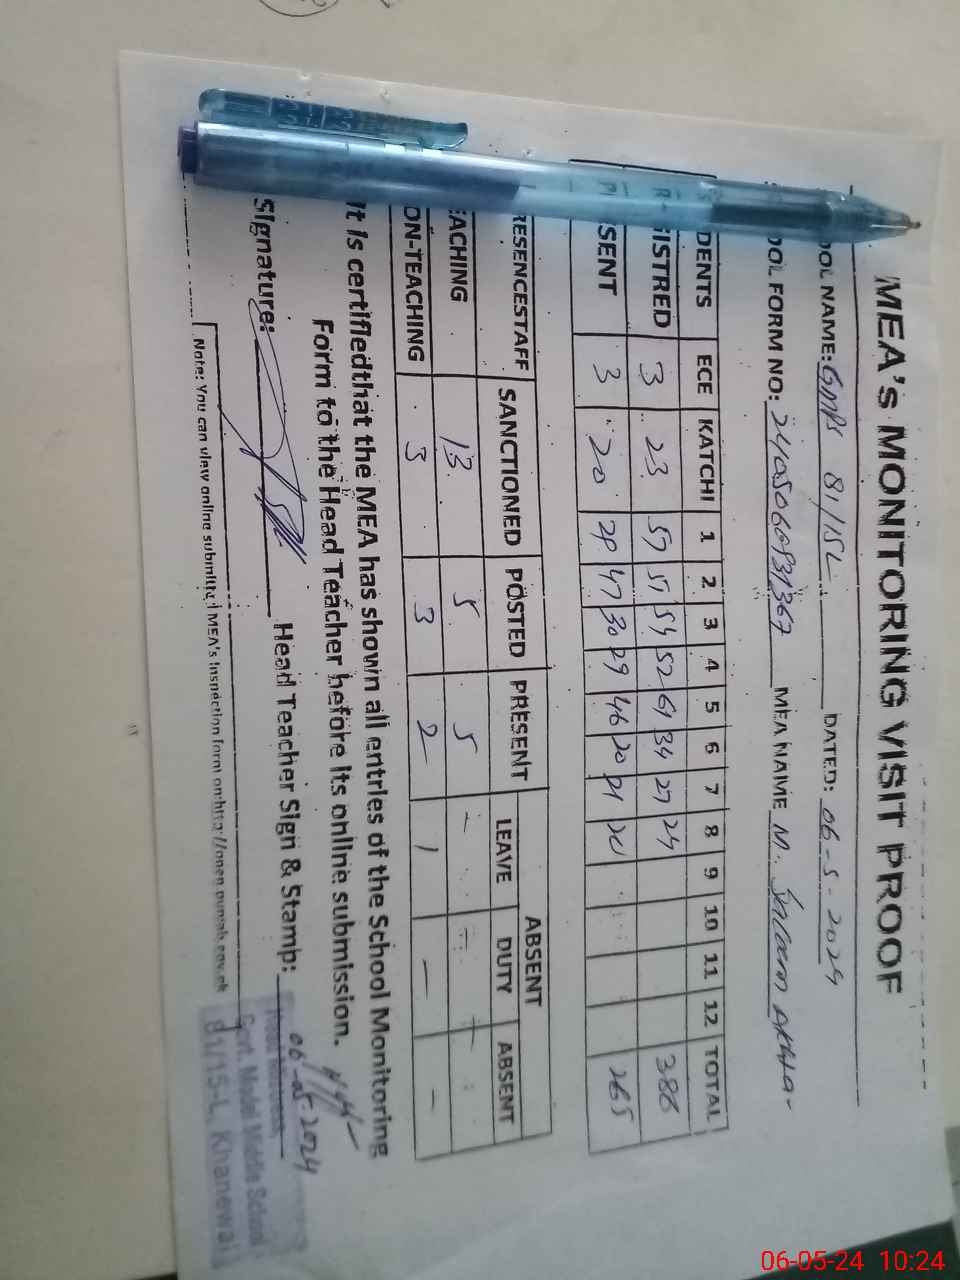 MEA's MONITORING VISIT PROOF
OOL NAME: GMPS 81/15L DATED: 06-5-2024
OOL FORM NO: MEA NAME M. Saleem Akhta-
DENTS ECE KATCHI 1 2 3 4 5 6 7 8 9 10 11 12 TOTAL
ISTRED 3 23 57 51 54 52 61 34 27 24 386
SENT 3 20 29 47 30 29 46 20 21 20 265
RESENCESTAFF SANCTIONED POSTED PRESENT ABSENT
LEAVE DUTY ABSENT
EACHING 13 5 5 - - -
ON-TEACHING 3 3 2 1 - -
It is certifiedthat the MEA has shown all entries of the School Monitoring
Form to the Head Teacher before its online submission.
Signature: Head Teacher Sign & Stamp:
06-05-2024
Note: You can view online submitted MEA's Inspection form on:http://open.punjab.gov.pk
Govt. Model Middle School
81/15-L, Khanewal
06-05-24 10:24